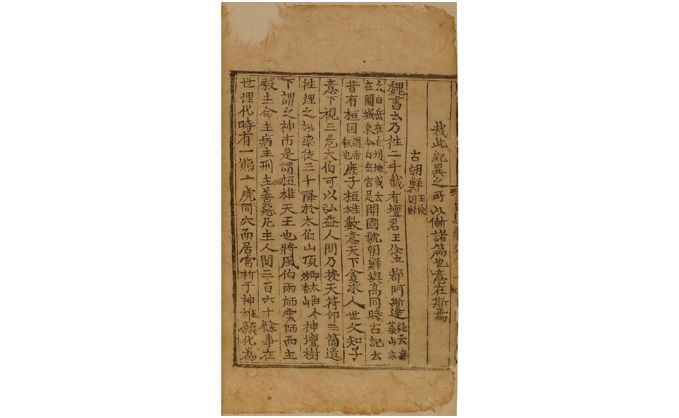 哉此紀異之所以漸諸篇也意在斯焉
古朝鮮 王儉朝鮮
魏書云乃徃二千載有壇君王儉立都阿斯達 経云無葉山亦
云白岳在白州地或云在開城東今白岳宮是 開國號朝鮮與高同時古記云
昔有桓国 謂帝釋也 庶子桓雄數意天下貪求人世父知子
意下視三危太伯可以弘益人間乃授天符印三箇遣
徃理之雄率徒三千降於太伯山頂 即太伯今妙香山 神壇樹
下謂之神市是謂桓雄天王也將風伯雨師雲師而主
穀主命主病主刑主善惡凡主人間三百六十餘事在
世理化時有一熊一虎同穴而居常祈于神雄願化爲